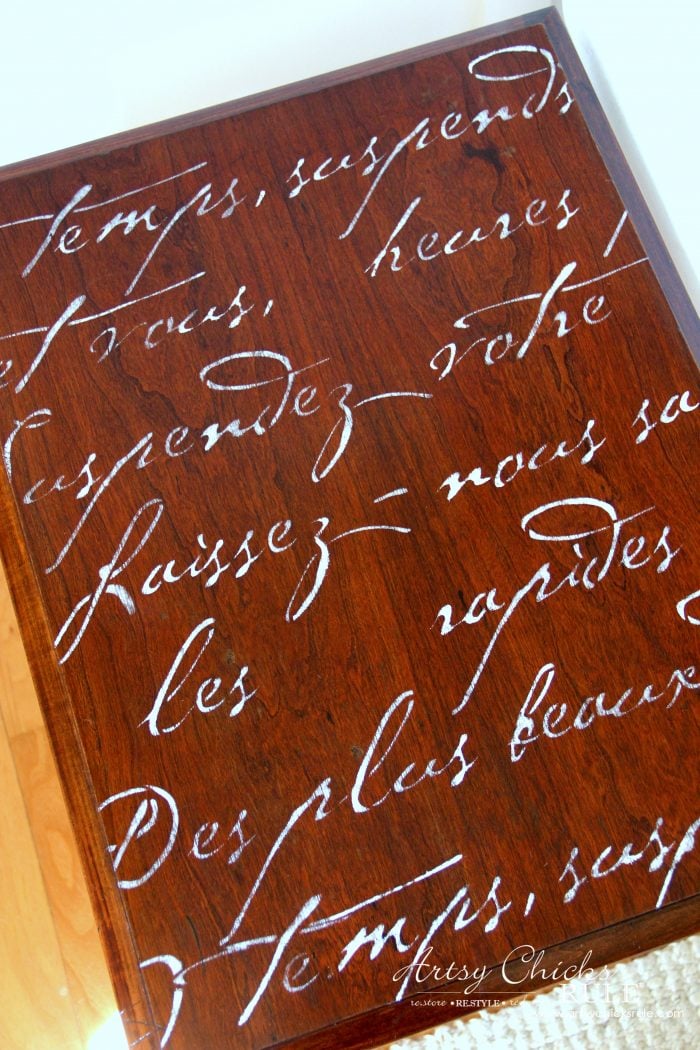 temps, suspends
et vous, heures
Suspendez-votre
Laissez-nous sa
les rapides
Des plus beaux
temps, susp
Artsy Chicks
RULE
www.artsychicksrule.com